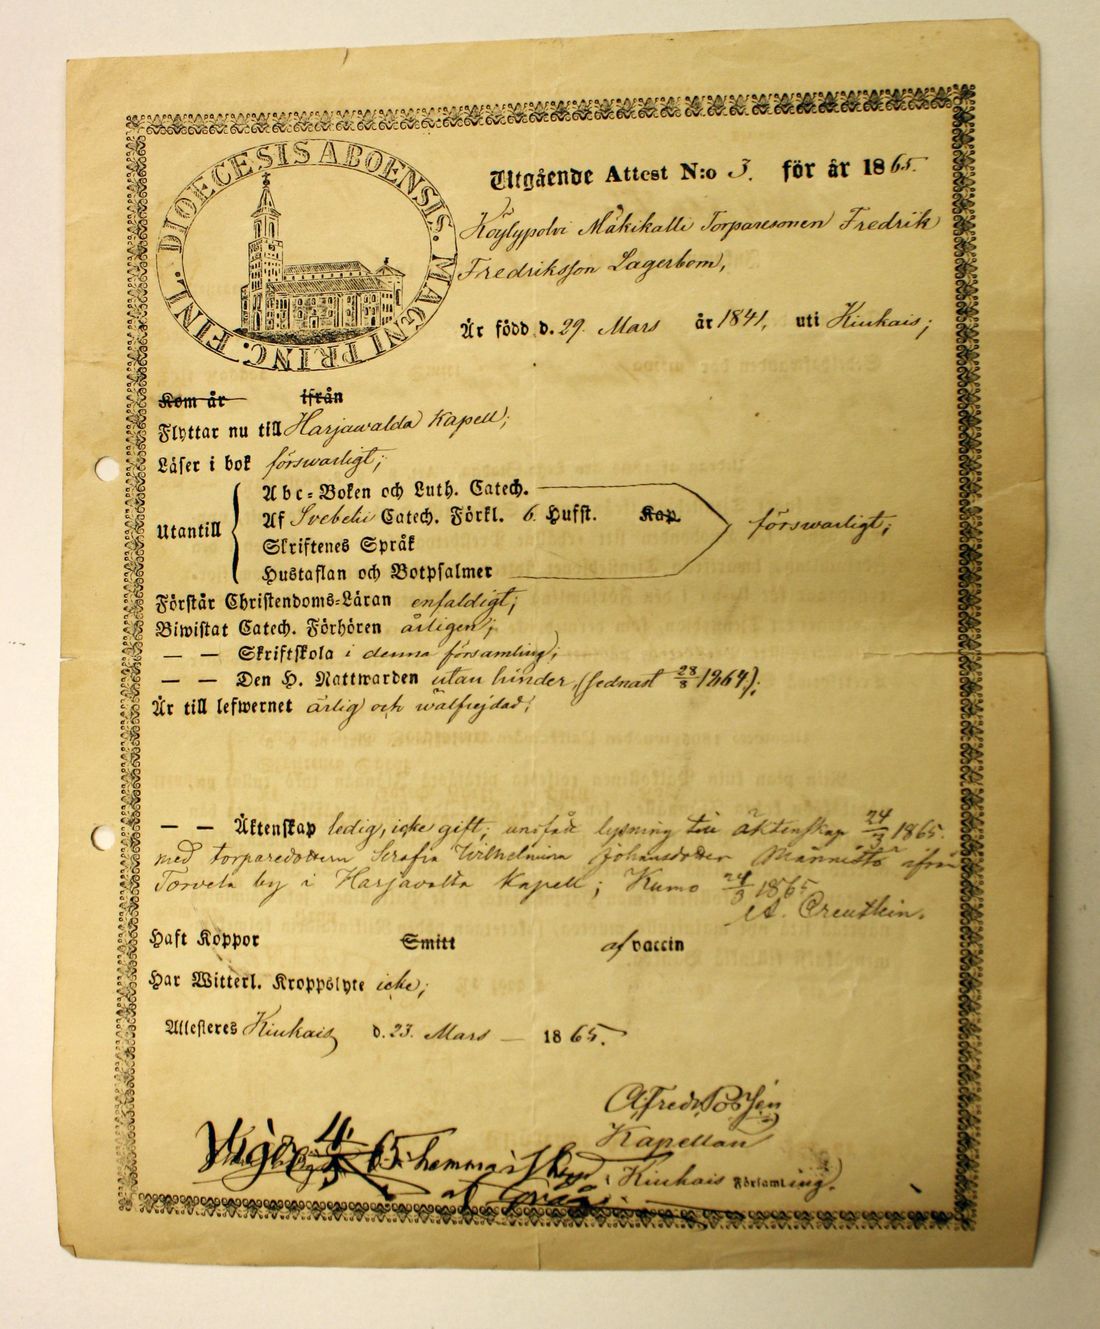 DIOECESIS ABOENSIS. MAGNI PRINC. FINL.
Utgående Attest N:o 3. för år 1865.
Köylypolvi Mäkikalli Torparesonen Fredrik
Fredriksson Lagerbom,
Är född d. 29. Mars år 1841, uti Kiukais;
Kom år ifrån
Flyttar nu till Harjawalda Kapell;
Läser i bok förswarligt;
Utantill
Abc-Boken och Luth. Catech.
Af Svebelii Catech. Förkl. 6. Hufst. Kap förswarligt;
Skriftenes Språk
Hustaflan och Botpsalmer
Förstår Christendoms-Läran enfaldigt;
Biwistat Catech. Förhören årligen;
— — Skriftskola i denna församling;
— — Den H. Nattwarden utan hinder (sednast 28/8 1864);
Är till lefwernet ärlig och wälfrejdad;
— — Äktenskap ledig, icke gift; undfått lysning till äktenskap 24/3 1865
med torparedottern Serafia Wilhelmina Johansdotter Männistö ifrån
Torvela by i Harjavalta Kapell; Kumo 24/3 1865
A. Creutlein.
Haft Koppor Smitt af vaccin
Har Witterl. Kroppslyte icke;
Attesteres Kiukais d. 23. Mars — 1865.
Alfred
Kapellan
i Kiukais Församling.
Vigde 4/5 65 hemma